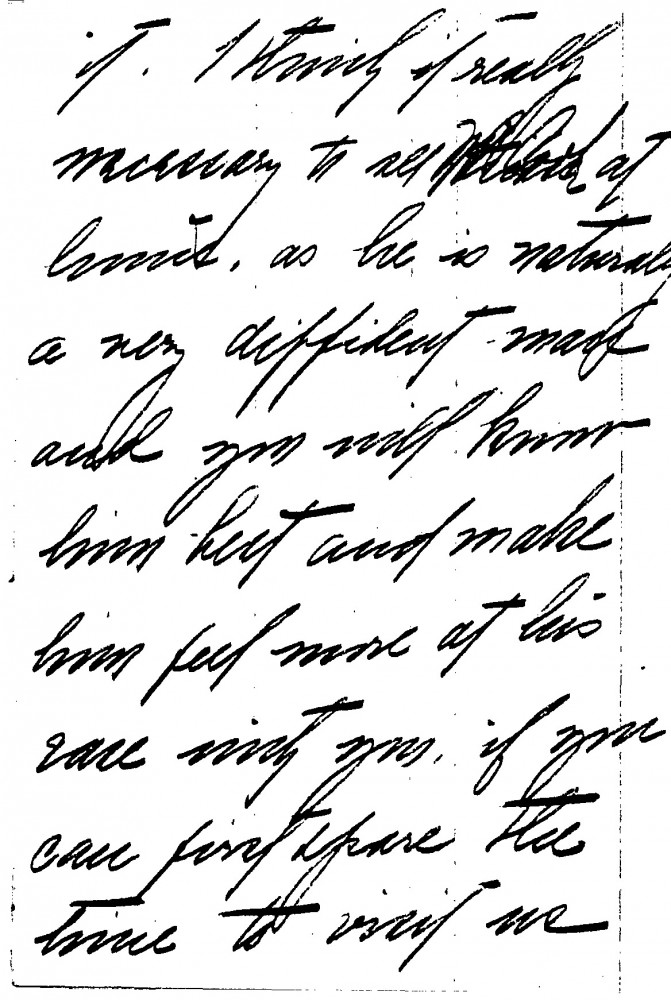 it. I think it really
necessary to see at
home, as he is naturally
a very diffident man
and you will know
him best and make
him feel more at his
ease with you, if you
can first spare the
time to visit us